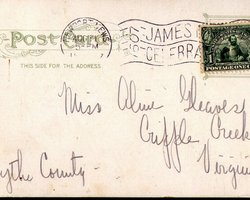 Post Card
THIS SIDE FOR THE ADDRESS
NEWPORT NEWS
JAMES
CELEBRA
POSTAGE ONE
Miss Aline Cleaves
Cripple Creek
Virgin
ythe County